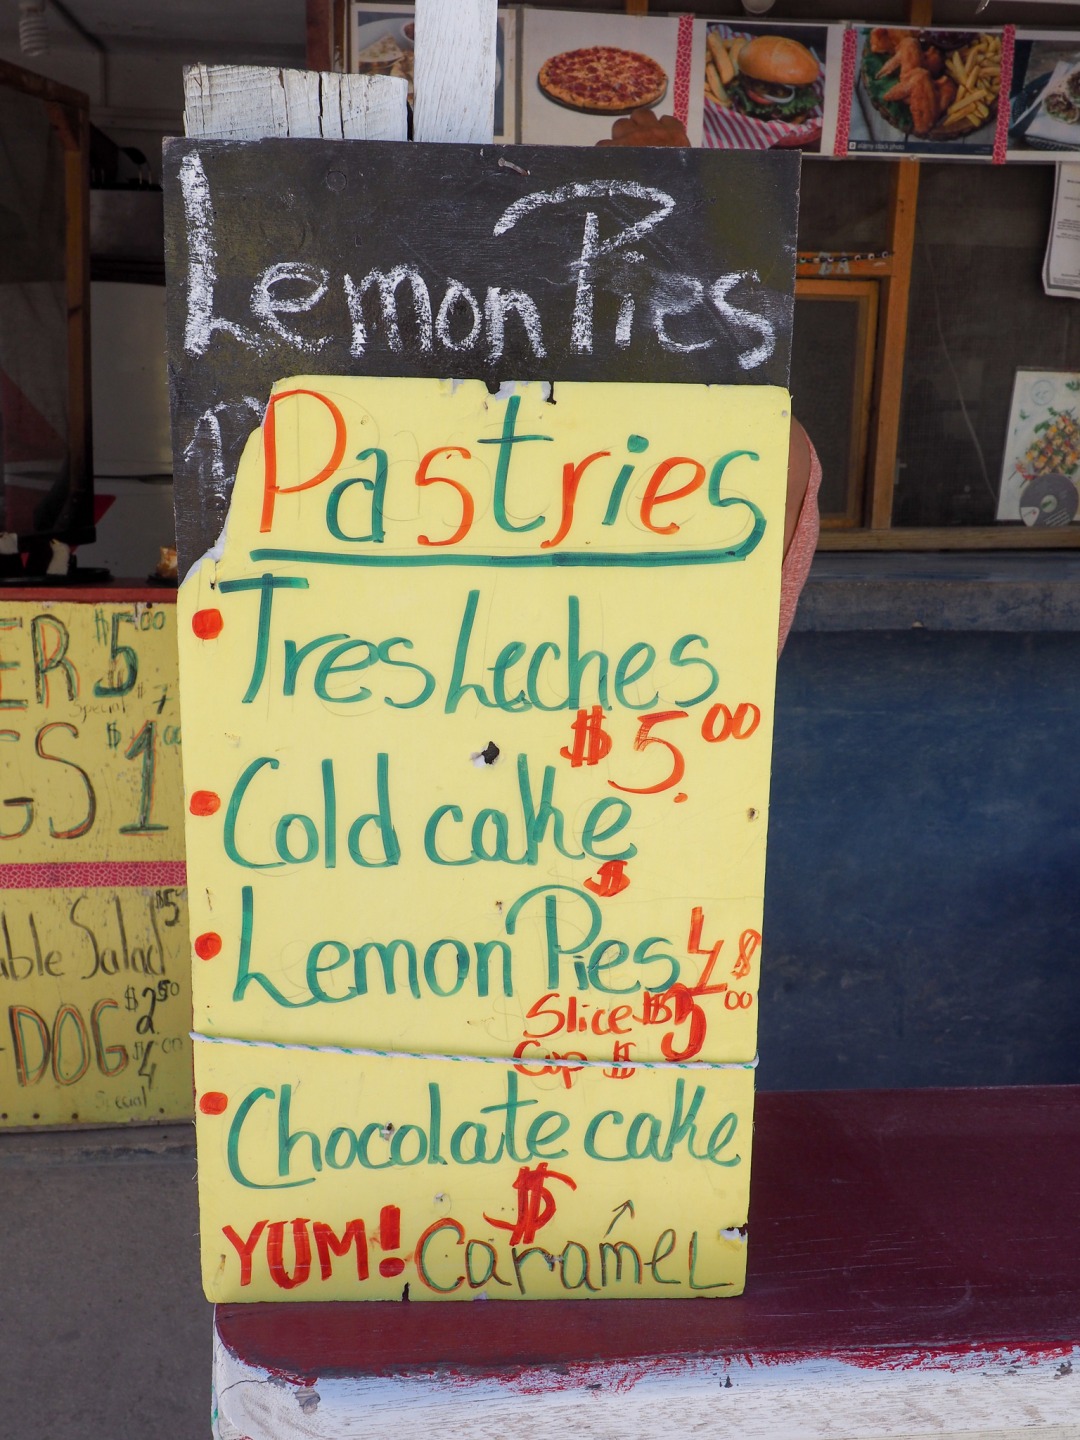 Lemon Pies
Pastries
Tres Leches
$5.00
Cold cake
$
Lemon Pies
Slice $5 00
Cup $
Chocolate cake
$
YUM! Caramel
ER $5.00
Special
GS $1.00
able Salad $5
-DOG $2.50
$4
Special